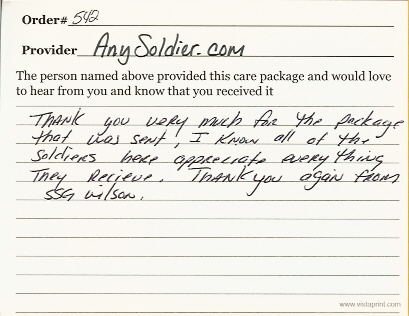 Order# 542
Provider AnySoldier.com
The person named above provided this care package and would love
to hear from you and know that you received it
THANK you very much for the package
that was sent, I know all of the
Soldiers here appreciate every thing
They Recieve. THANK you again from
SSG wilson.
www.vistaprint.com